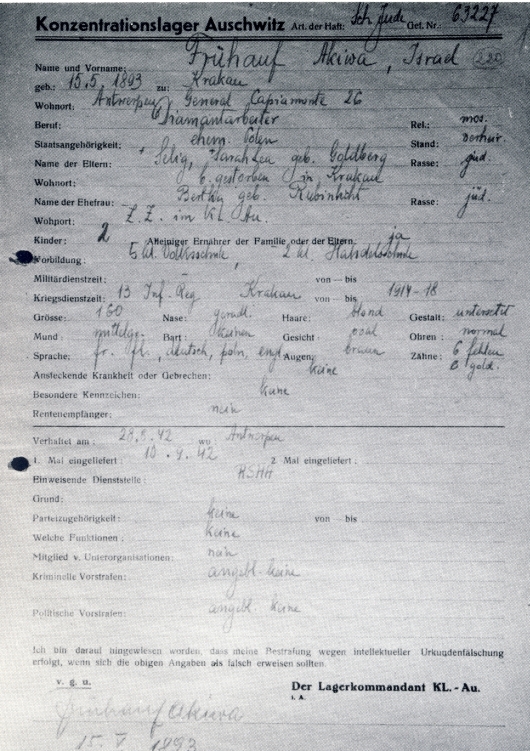 Konzentrationslager Auschwitz Art. der Haft: Sch. Jude Gef. Nr.: 63227
Name und Vorname: Frühauf Akiwa, Israel
geb.: 15.5.1893 zu: Krakau
Wohnort: Antwerpen, General Capiamonte 26
Beruf: Diamantarbeiter Rel.: mos.
Staatsangehörigkeit: ehem. Polen Stand: verheir.
Name der Eltern: Selig, Sarah Lea geb. Goldberg Rasse: jüd.
Wohnort: b. gestorben in Krakau
Name der Ehefrau: Bertha geb. Rubinlicht Rasse: jüd.
Wohport: z. Z. im KL Au.
Kinder: 2 Alleiniger Ernährer der Familie oder der Eltern: ja
Vorbildung: 5 kl. Volksschule, 2 kl. Handelsschule
Militärdienstzeit: von — bis
Kriegsdienstzeit: 13 Inf. Reg Krakau von — bis 1914-18
Grösse: 160 Nase: geradl. Haare: blond Gestalt: untersetzt
Mund: mittelgr. Bart: keinen Gesicht: oval Ohren: normal
Sprache: fr. fl., deutsch, poln, engl Augen: braun Zähne: 6 fehlen
6 gold.
Ansteckende Krankheit oder Gebrechen: keine
Besondere Kennzeichen: keine
Rentenempfänger: nein
Verhaftet am: 28.8.42 wo: Antwerpen
1. Mal eingeliefert: 10.9.42 2. Mal eingeliefert:
Einweisende Dienststelle: RSHA
Grund:
Parteizugehörigkeit: keine von — bis
Welche Funktionen: keine
Mitglied v. Unterorganisationen: nein
Kriminelle Vorstrafen: angebl. keine
Politische Vorstrafen: angebl. keine
Ich bin darauf hingewiesen worden, dass meine Bestrafung wegen intellektueller Urkundenfälschung
erfolgt, wenn sich die obigen Angaben als falsch erweisen sollten.
v. g. u. Der Lagerkommandant KL.-Au.
i. A.
Frühauf Akiwa
15. V 1893